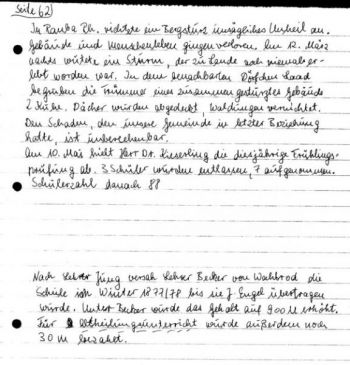 Seite 62)
In Kauba Rh. richtete ein Bergsturz unsägliches Unheil an.
Gebäude und Menschenleben gingen verloren. Am 12. März
nachts wütete ein Sturm, der zu Lande noch niemals er-
lebt worden war. In dem benachbarten Dörfchen Laad
begruben die Trümmer eines zusammengestürzten Gebäudes
2 Kühe. Dächer wurden abgedeckt, Waldungen vernichtet.
Den Schaden, den unsere Gemeinde in letzter Beziehung
hatte, ist unübersehbar.
Am 10. Mai hielt Herr Dr. Kieserling die diesjährige Frühlings-
prüfung ab. 3 Schüler wurden entlassen, 7 aufgenommen.
Schülerzahl danach 88
Nach Lehrer Jung versah Lehrer Becker von Wahlrod die
Schule im Winter 1877/78 bis sie J. Engel übertragen
wurde. Unter Becker wurde das Gehalt auf 900 M erhöht.
Für Abtheilungsunterricht wurde außerdem noch
30 M bezahlt.